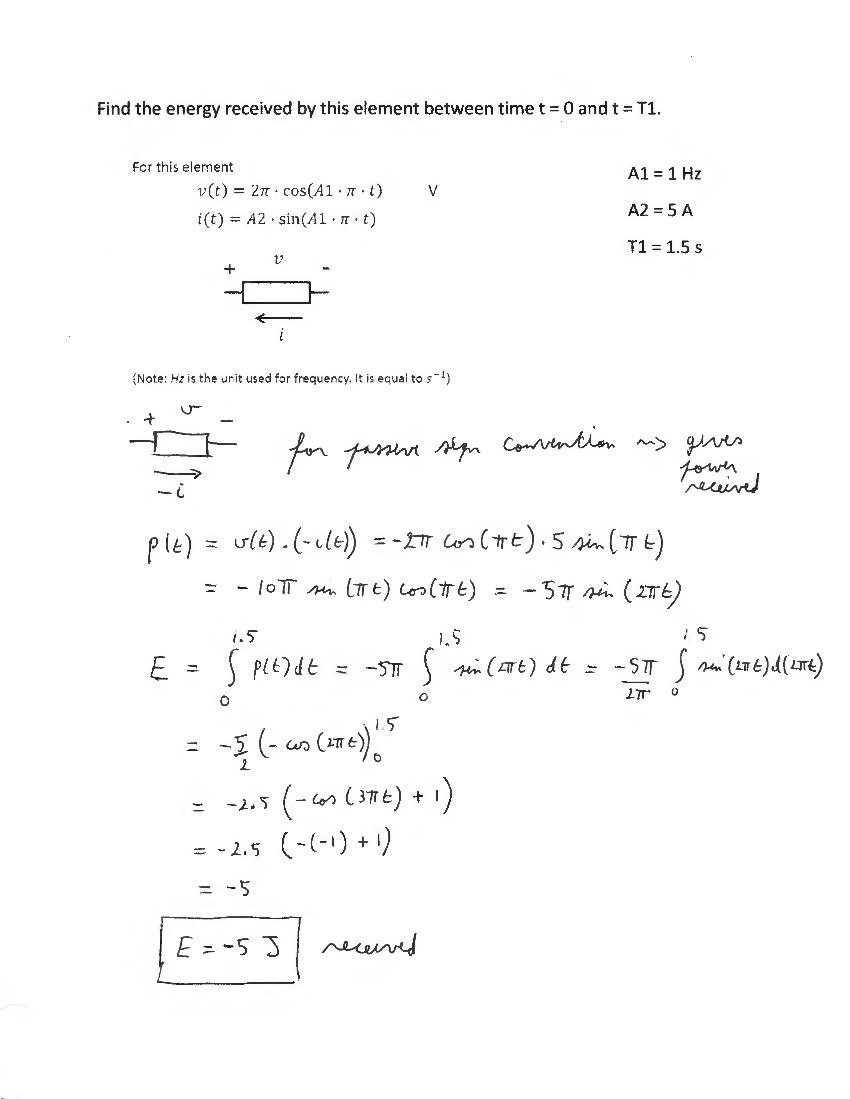 Find the energy received by this element between time t = 0 and t = T1.
For this element
v(t) = 2π · cos(A1 · π · t) V
i(t) = A2 · sin(A1 · π · t)
A1 = 1 Hz
A2 = 5 A
T1 = 1.5 s
+ v -
i
(Note: Hz is the unit used for frequency. It is equal to s⁻¹)
+ v -
-i
for passive sign convention ~> gives power received
p(t) = v(t) . (-i(t)) = -2π cos(πt) . 5 sin(πt)
= - 10π sin (πt) cos(πt) = - 5π sin (2πt)
E = ∫₀^1.5 p(t)dt = -5π ∫₀^1.5 sin(2πt) dt = -5π/2π ∫₀^1.5 sin(2πt)d(2πt)
= -5/2 (- cos (2πt))₀^1.5
= -2.5 (-cos (3πt) + 1)
= -2.5 (-(-1) + 1)
= -5
E = -5 J received